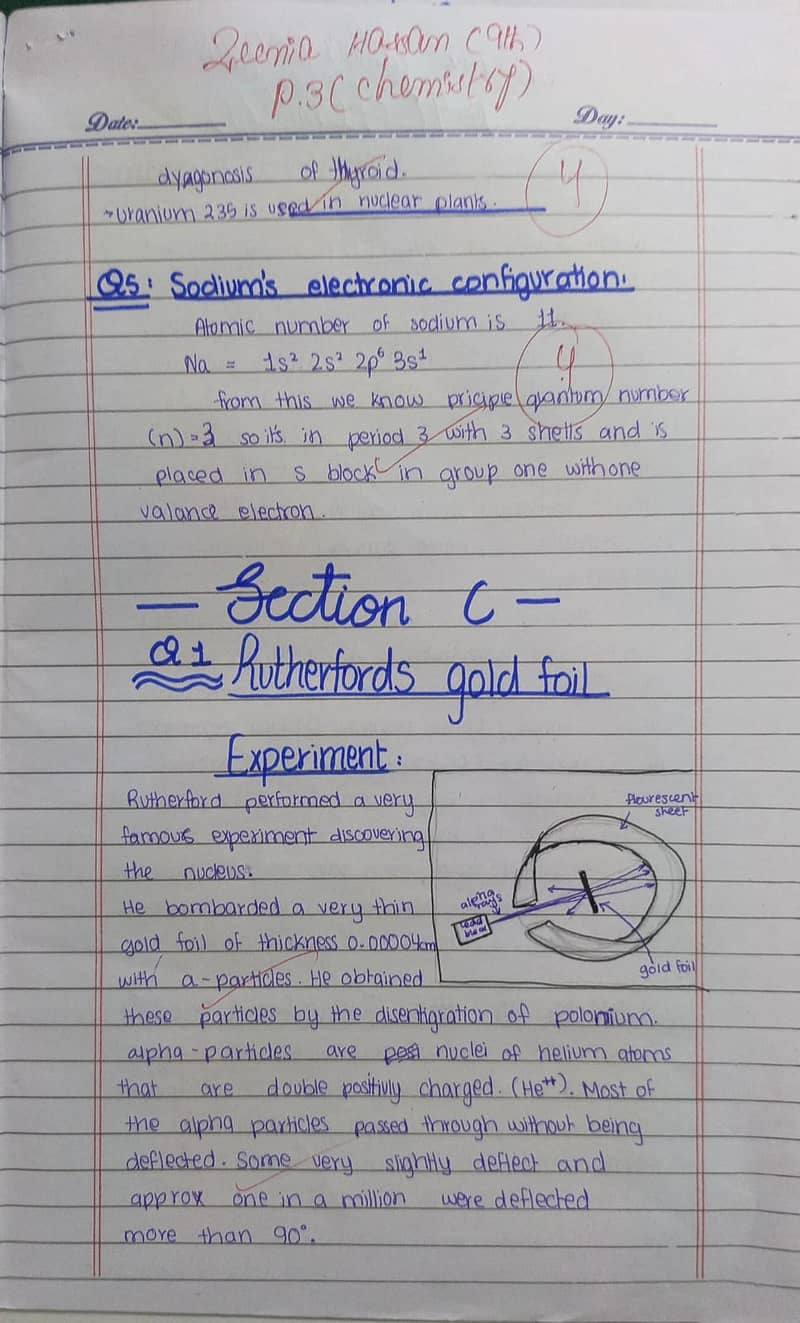 Zeenia Hassan (9th)
P.3 (chemistry)
Date:
Day:
dyagonosis of thyroid.
4
→ uranium 235 is used in nuclear plants.
Q5: Sodium's electronic configuration.
Atomic number of sodium is 11.
Na = 1s² 2s² 2p⁶ 3s¹
4
from this we know priciple quantum number
(n)=3 so its in period 3 with 3 shells and is
placed in s block in group one with one
valance electron.
— Section C —
Q1 Rutherfords gold foil
Experiment:
Rutherford performed a very
famous experiment discovering
the nucleus.
He bombarded a very thin
gold foil of thickness 0.00004km
with a-particles. He obtained
these particles by the disentigration of polonium.
alpha-particles are nuclei of helium atoms
that are double positivly charged. (He⁺⁺). Most of
the alpha particles passed through without being
deflected. Some very slightly deflect and
approx one in a million were deflected
more than 90°.
flourescent
sheet
alpha
rays
lead
block
gold foil